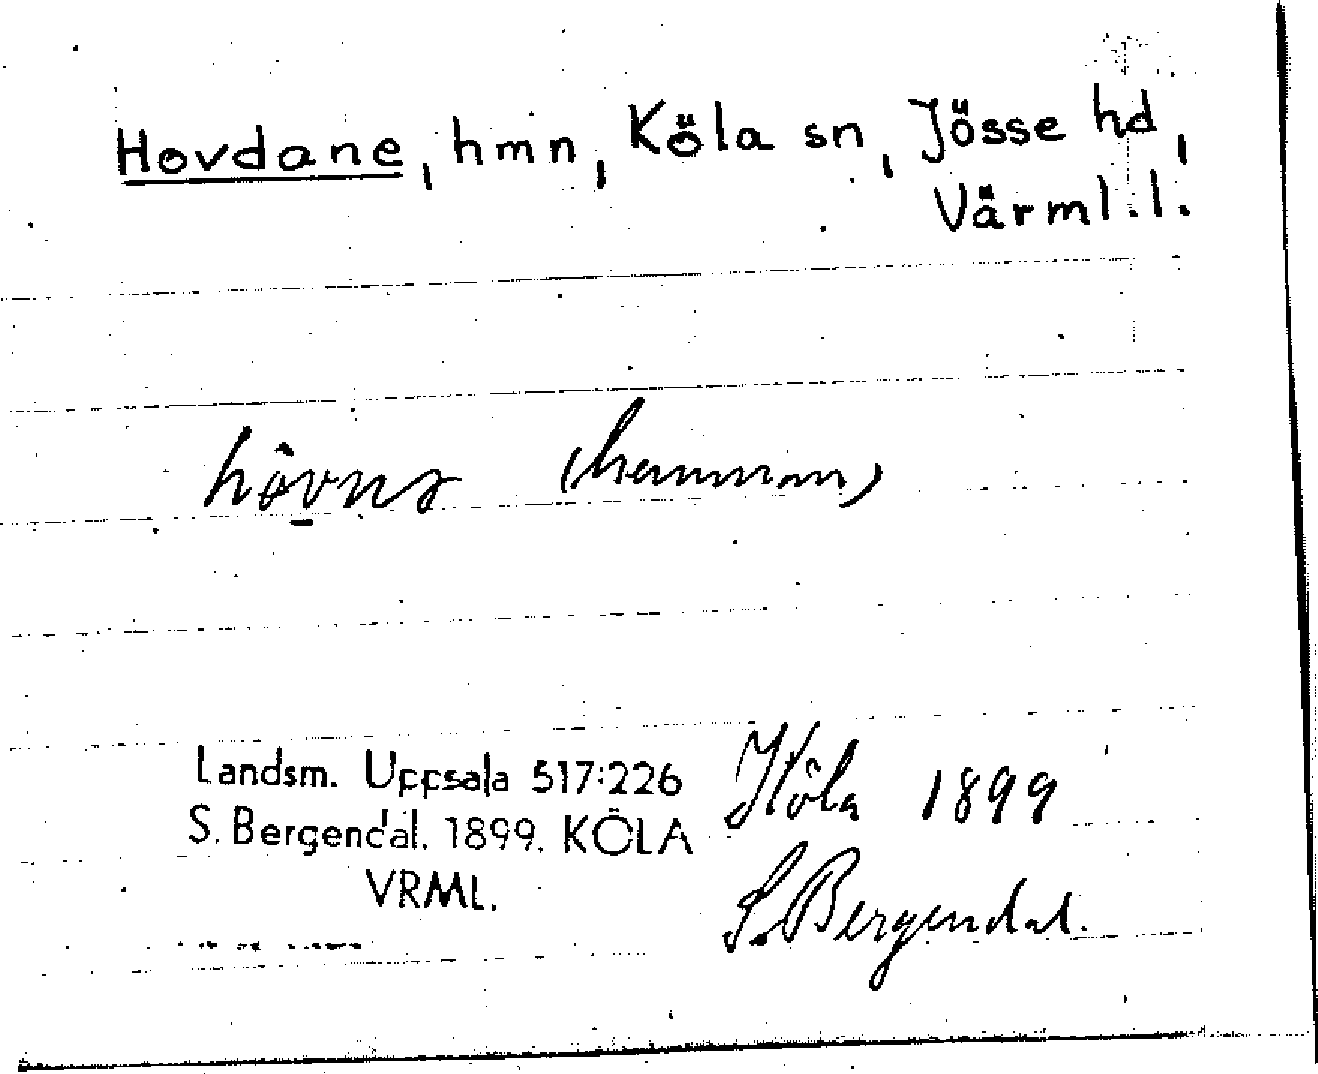 Hovdane, hmn, Köla sn, Jösse hd,
Värml.l.
(hemman)
Landsm. Uppsala 517:226
S. Bergendal. 1899. KÖLA
VRML.
Köla 1899
S. Bergendal.